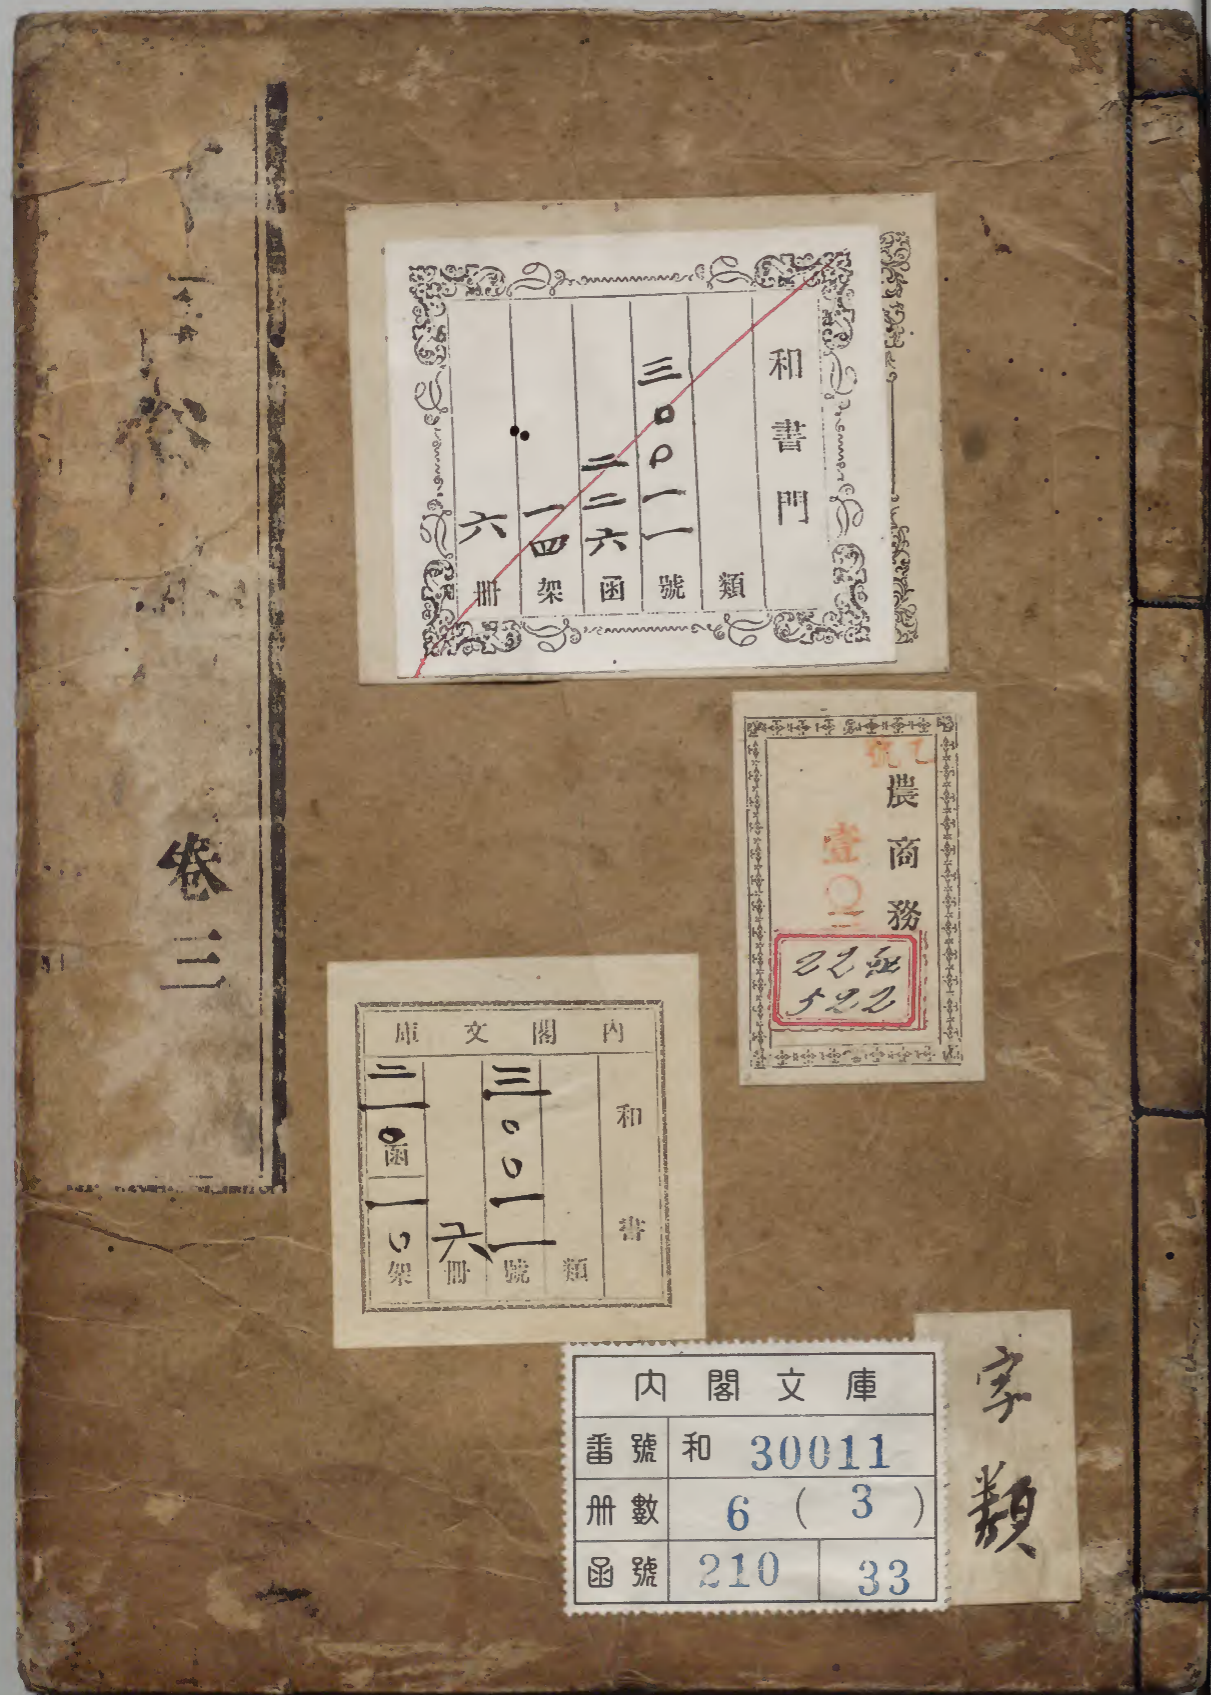 和書門
類
三〇〇一一號
二二六函
一四架
六冊
乙號
農商務
壹〇二
22
522
內閣文庫
和書
類
三〇〇一一號
六冊
二一〇函
一〇架
內閣文庫
番號 和 30011
册數 6 ( 3 )
函號 210 33
字類
卷三